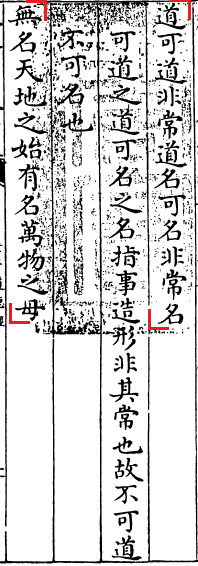 道可道非常道名可名非常名
可道之道可名之名指事造形非其常也故不可道
不可名也
無名天地之始有名萬物之母